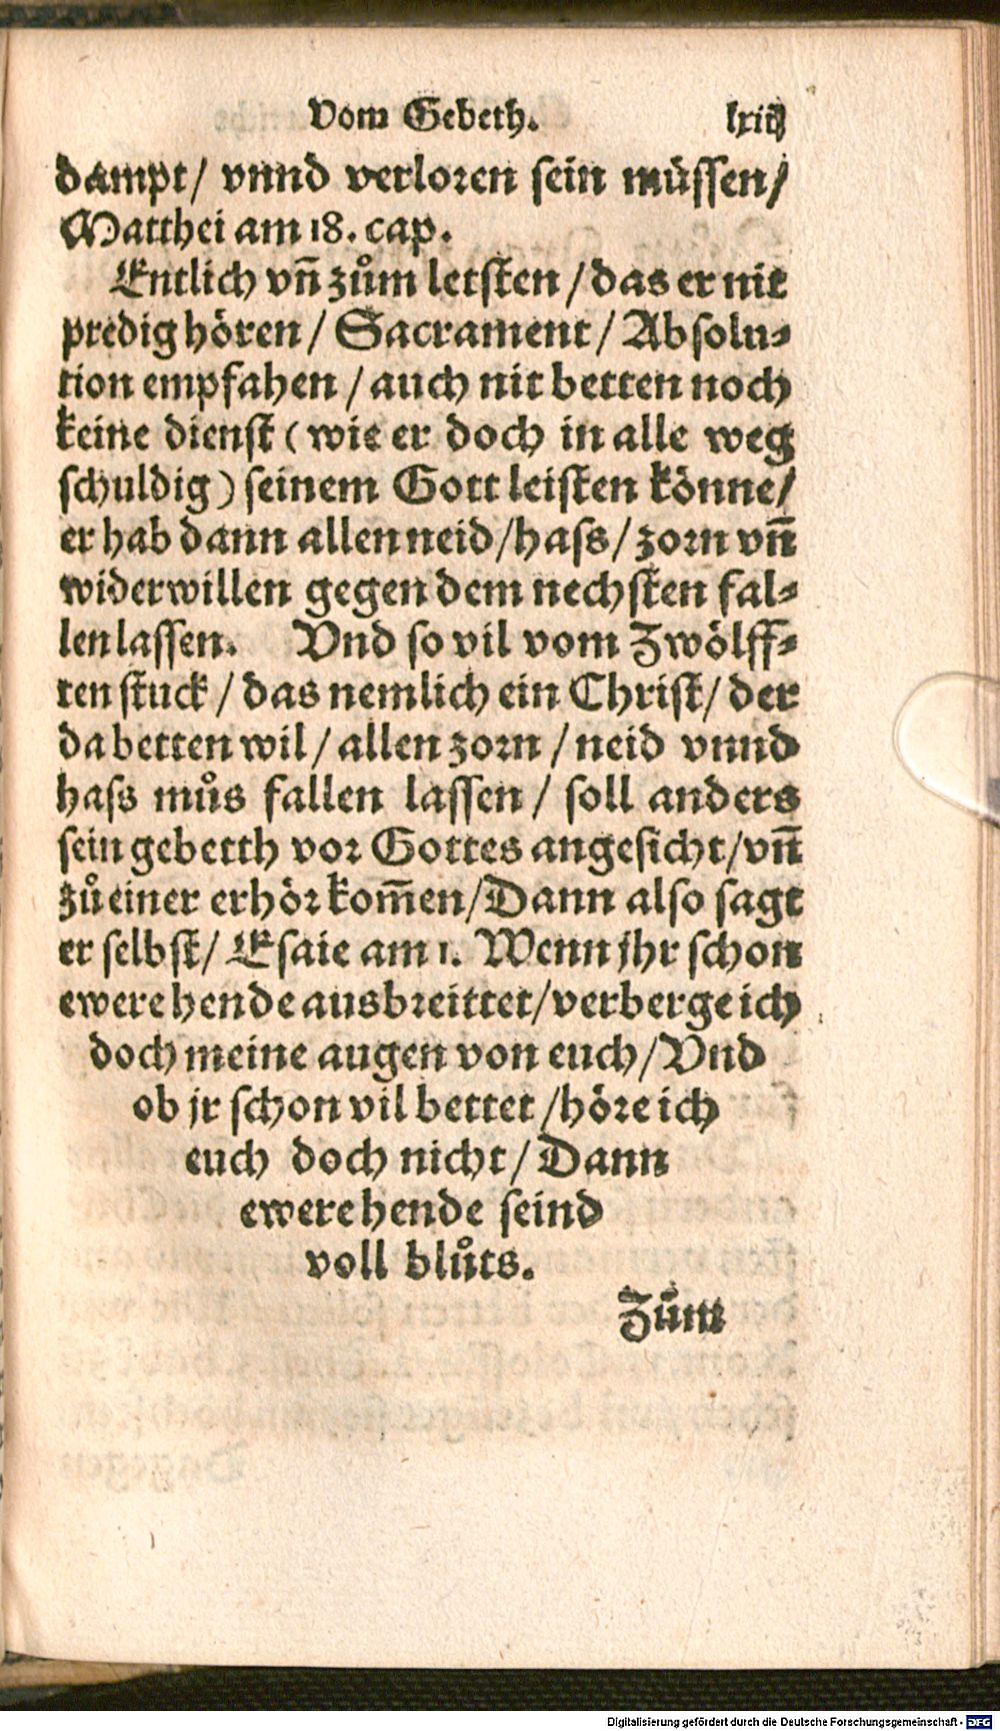 Vom Gebeth. lxiij
dampt/ vnnd verloren sein müssen/
Matthei am 18. cap.
Entlich vn̄ zům letsten / das er nit
predig hören / Sacrament / Absolu⸗
tion empfahen / auch nit betten noch
keine dienst ( wie er doch in alle weg
schuldig ) seinem Gott leisten könne/
er hab dann allen neid /hass/ zorn vn̄
widerwillen gegen dem nechsten fal⸗
len lassen. Vnd so vil vom Zwölff⸗
ten stuck / das nemlich ein Christ/ der
da betten wil / allen zorn / neid vnnd
hass můs fallen lassen / soll anders
sein gebetth vor Gottes angesicht/vn̄
zů einer erhör kom̄en/Dann also sagt
er selbst/ Esaie am 1. Wenn jhr schon
ewere hende ausbreittet/verberge ich
doch meine augen von euch/Vnd
ob jr schon vil bettet /höre ich
euch doch nicht/ Dann
ewere hende seind
voll blůts.
Zům
Digitalisierung gefördert durch die Deutsche Forschungsgemeinschaft - DFG